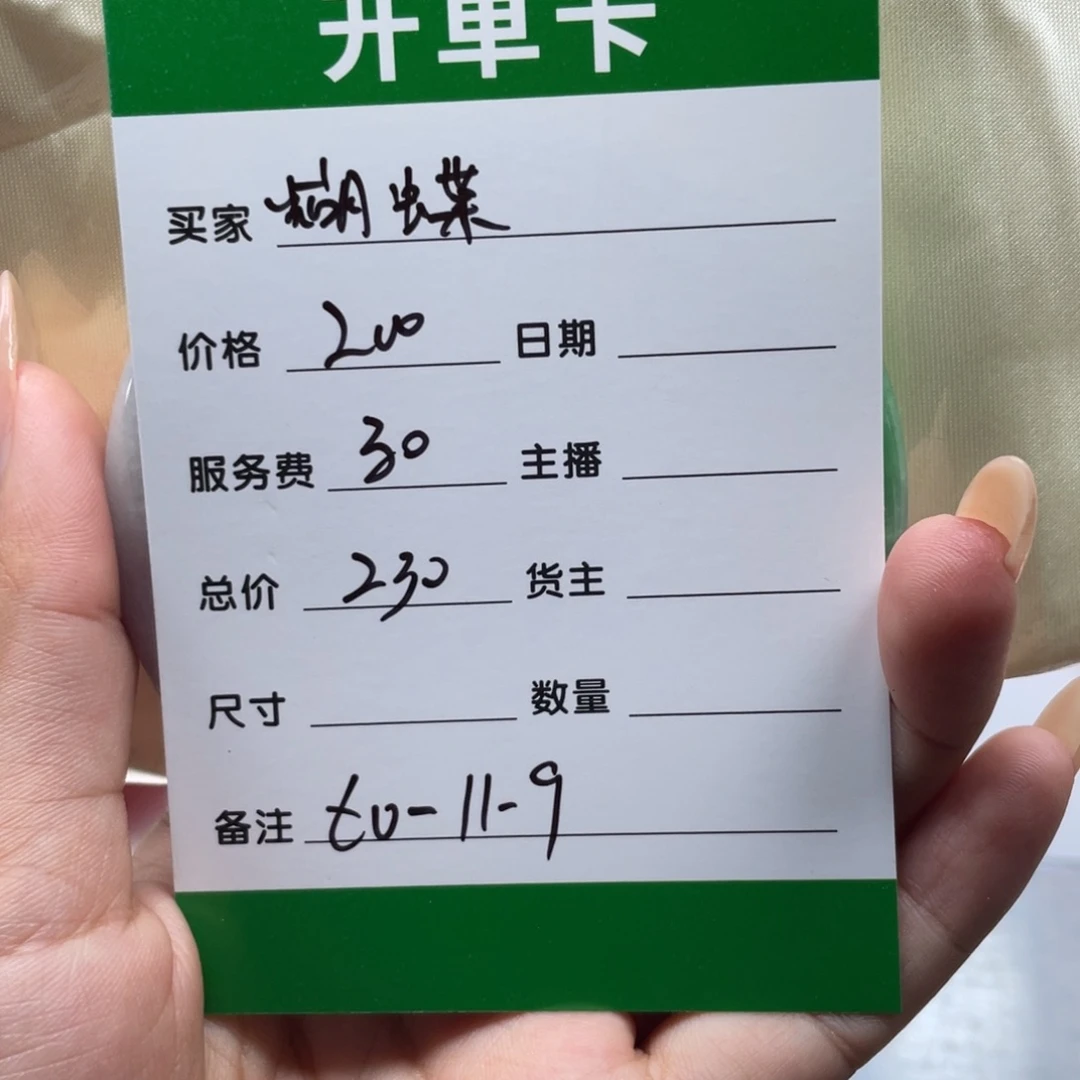 开单卡
买家 蝴蝶
价格 200 日期
服务费 30 主播
总价 230 货主
尺寸 数量
备注 60-11-9